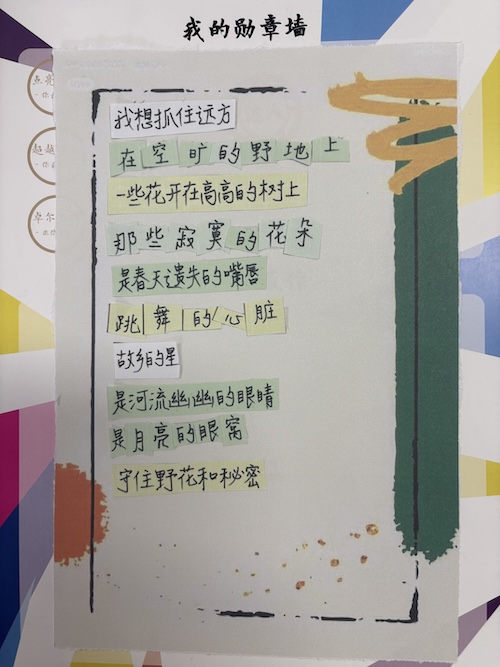 我的勋章墙
点亮
超越
卓尔
我想抓住远方
在空旷的野地上
一些花开在高高的树上
那些寂寞的花朵
是春天遗失的嘴唇
跳舞的心脏
故乡的星
是河流幽幽的眼睛
是月亮的眼窝
守住野花和秘密